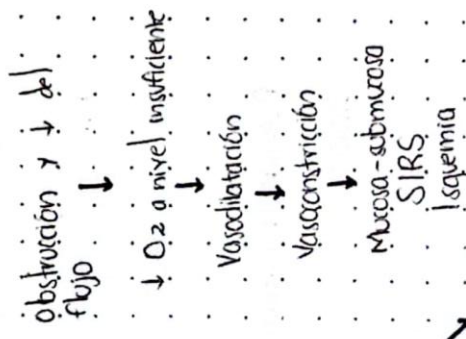 obstrucción y ↓ del
flujo
↓
↓ O2 a nivel insuficiente
↓
Vasodilatación
↓
Vasoconstricción
↓
Mucosa-submucosa
SIRS
Isquemia